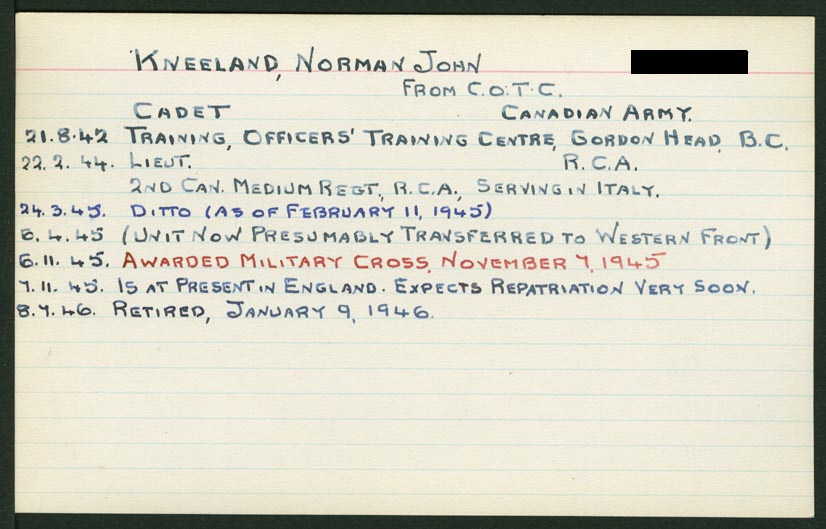 KNEELAND, NORMAN JOHN
FROM C.O.T.C.
CADET CANADIAN ARMY.
21.8.42 TRAINING, OFFICERS' TRAINING CENTRE, GORDON HEAD, B.C.
22.2.44. LIEUT. R.C.A.
2ND CAN. MEDIUM REGT., R.C.A., SERVING IN ITALY.
24.3.45. DITTO (AS OF FEBRUARY 11, 1945)
6.4.45 (UNIT NOW PRESUMABLY TRANSFERRED TO WESTERN FRONT)
6.11.45. AWARDED MILITARY CROSS, NOVEMBER 7, 1945
7.11.45. IS AT PRESENT IN ENGLAND. EXPECTS REPATRIATION VERY SOON.
8.7.46. RETIRED, JANUARY 9, 1946.